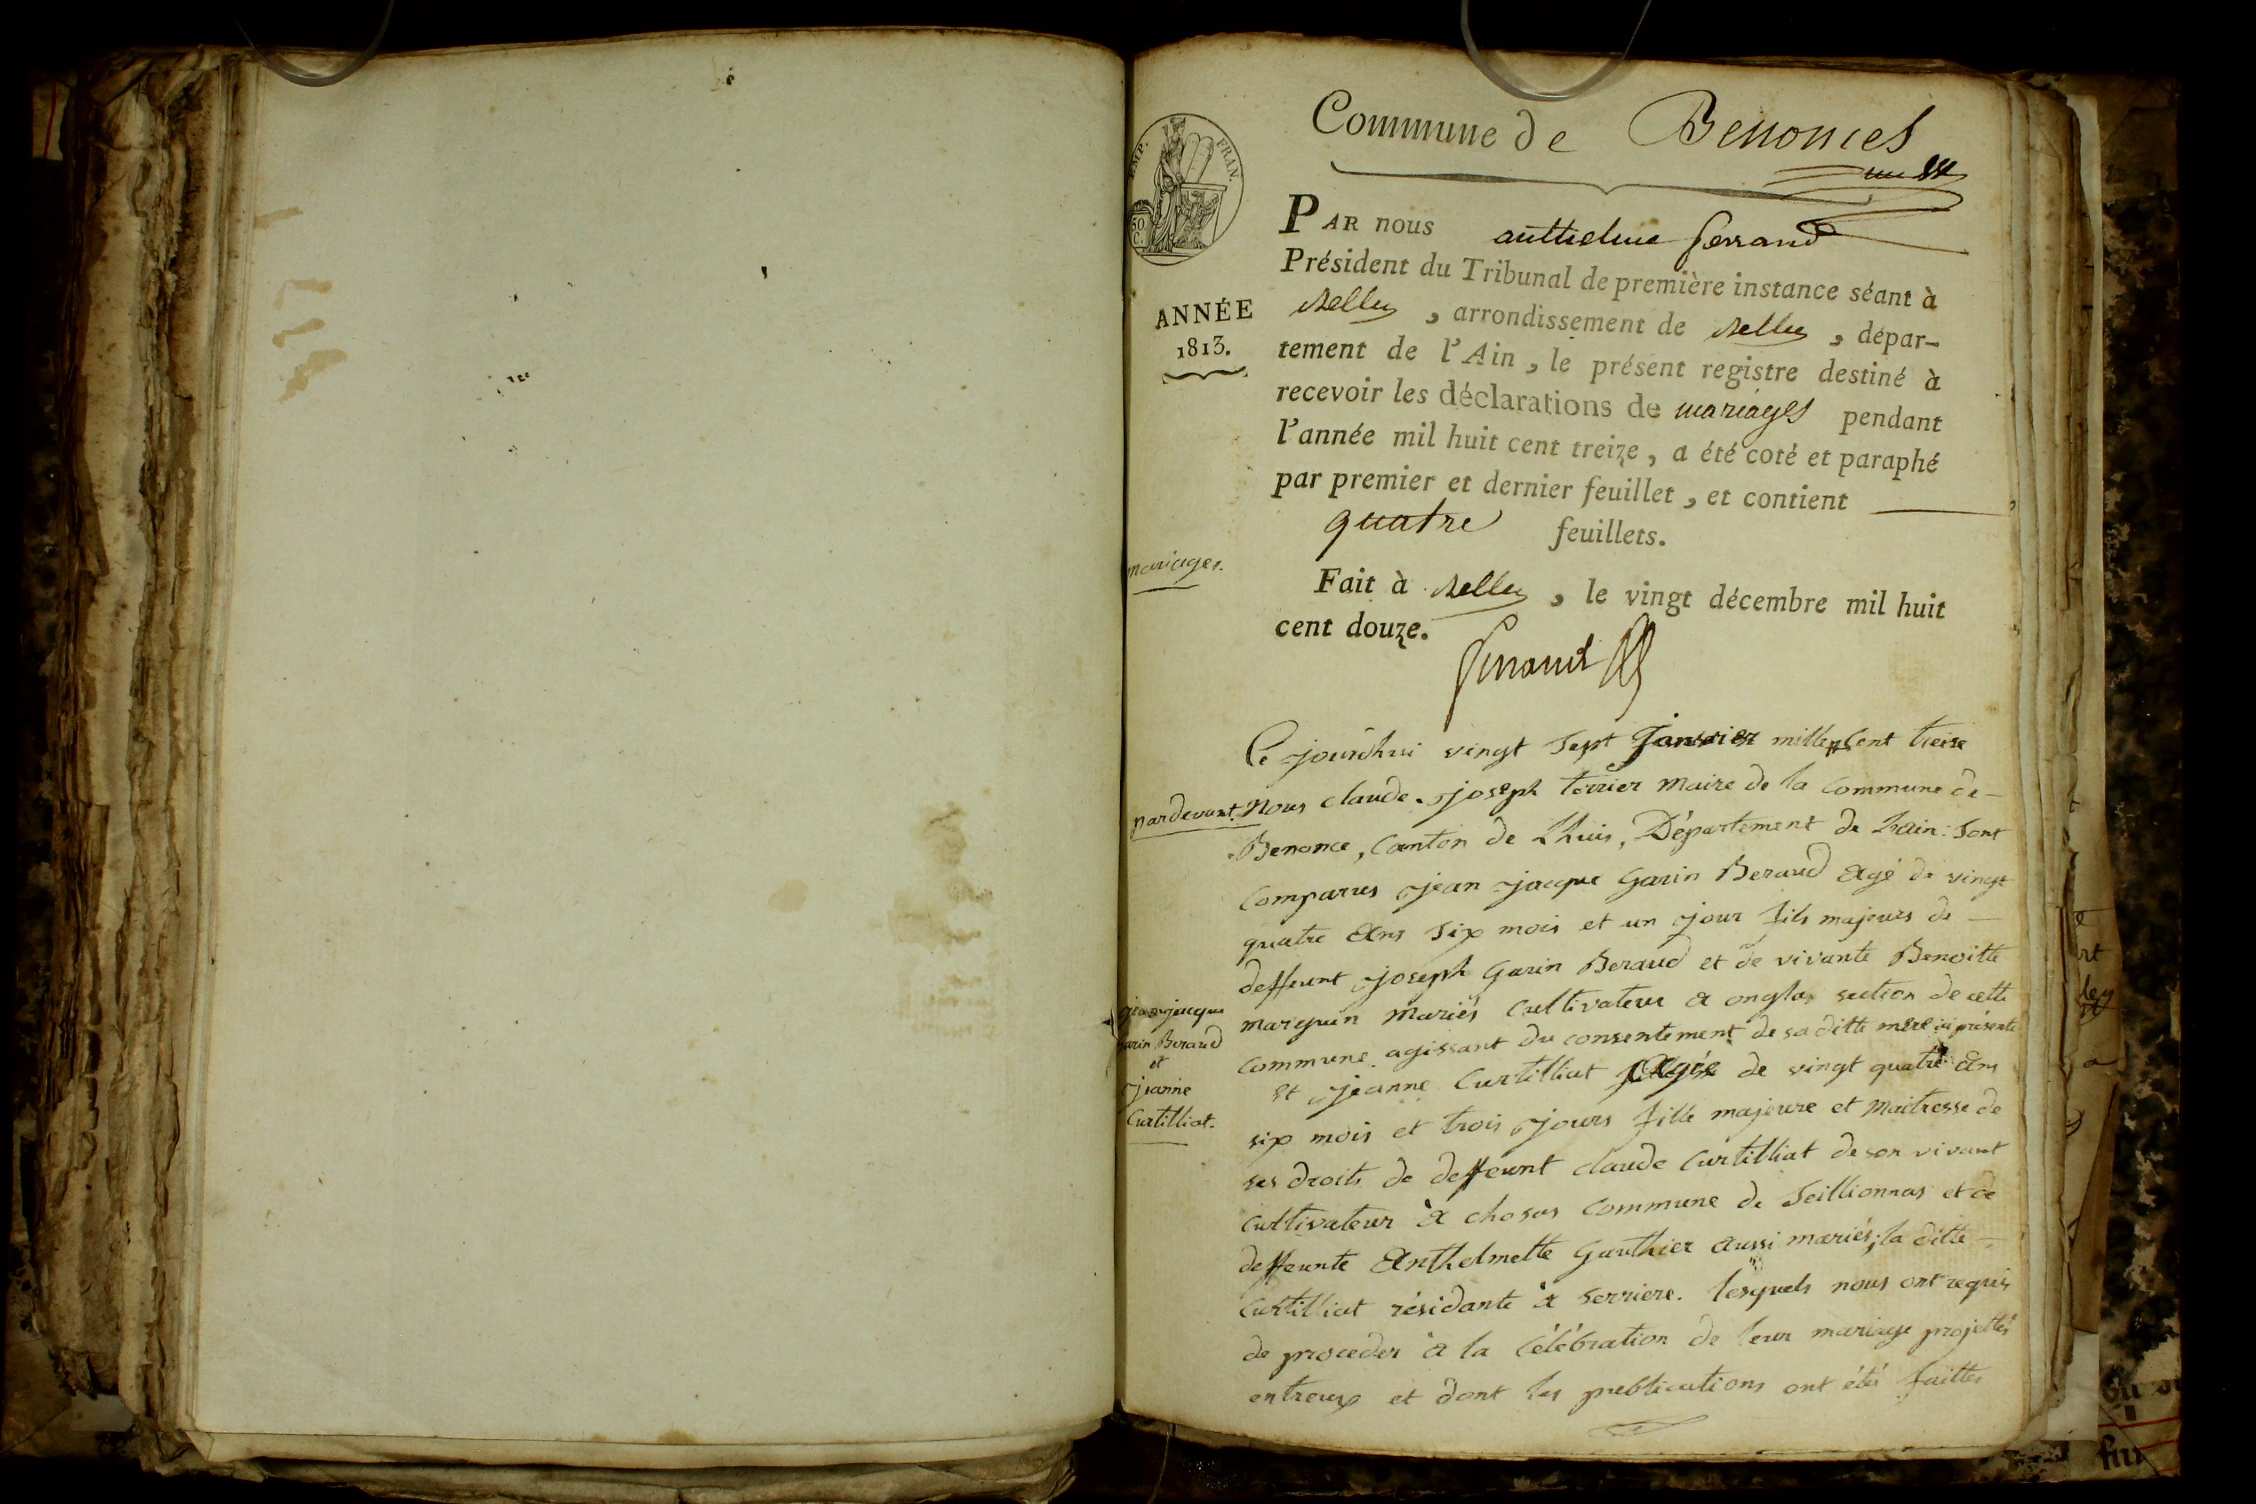 Commune de Benonces
EMP. FRAN.
50 C.
PAR nous anthelme ferrand
Président du Tribunal de première instance séant à
Belley, arrondissement de Belley, dépar-
tement de l'Ain, le présent registre destiné à
recevoir les déclarations de mariages pendant
l'année mil huit cent treize, a été coté et paraphé
par premier et dernier feuillet, et contient
quatre feuillets.
Fait à Belley, le vingt décembre mil huit
cent douze.
ferrand
ANNÉE
1813.
mariages.
Ce jourdhui vingt Sept Janvier mille cent treise
pardevant Nous claude joseph terrier Maire de la commune de
Benonce, Canton de Lhuis, Département de Lain: Sont
comparus jean jacque Garin Beraud agé de vingt
quatre ans Six mois et un jour fils majeurs de
deffeunt joseph Garin Beraud et de vivante Benoitte
marquin mariés cultivateur a onglas section de cette
commune agissant du consentement de sa ditte mère ici présente
et jeanne Curtilliat agée de vingt quatre ans
six mois et trois jours fille majeure et maitresse de
ses droits de deffeunt claude Curtilliat de son vivant
cultivateur à chosas commune de Seillionnas et de
deffeunte Anthelmette Gauthier aussi mariés; la ditte
Curtilliat résidante à Serriere. lesquels nous ont requis
de proceder à la célébration de leur mariage projetté
entreux et dont les publications ont été faittes
jean jacque
garin Beraud
et
Jeanne
Curtilliat.